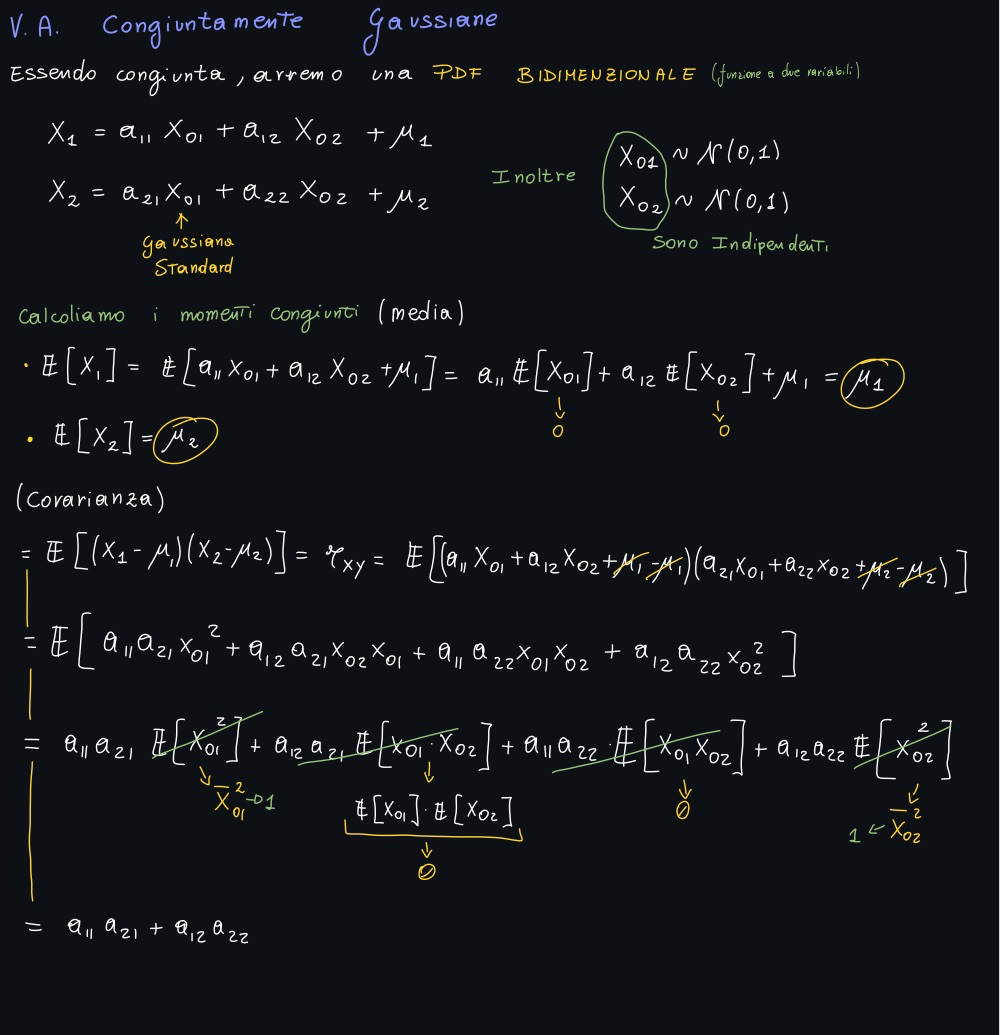 V. A. Congiuntamente Gaussiane
Essendo congiunta, avremo una PDF BIDIMENZIONALE (funzione a due variabili)
X₁ = a₁₁ X₀₁ + a₁₂ X₀₂ + μ₁
X₀₁ ~ N(0,1)
Inoltre
X₂ = a₂₁ X₀₁ + a₂₂ X₀₂ + μ₂
X₀₂ ~ N(0,1)
Gaussiana
Standard
Sono Indipendenti
Calcoliamo i momenti congiunti (media)
· E[X₁] = E[a₁₁ X₀₁ + a₁₂ X₀₂ + μ₁] = a₁₁ E[X₀₁] + a₁₂ E[X₀₂] + μ₁ = μ₁
↓ 0 ↓ 0
· E[X₂] = μ₂
(Covarianza)
= E[(X₁ - μ₁)(X₂ - μ₂)] = r_xy = E[(a₁₁ X₀₁ + a₁₂ X₀₂ + μ₁ - μ₁)(a₂₁ X₀₁ + a₂₂ X₀₂ + μ₂ - μ₂)]
= E[a₁₁ a₂₁ X₀₁² + a₁₂ a₂₁ X₀₂ X₀₁ + a₁₁ a₂₂ X₀₁ X₀₂ + a₁₂ a₂₂ X₀₂²]
= a₁₁ a₂₁ E[X₀₁²] + a₁₂ a₂₁ E[X₀₁ · X₀₂] + a₁₁ a₂₂ · E[X₀₁ X₀₂] + a₁₂ a₂₂ E[X₀₂²]
X̄₀₁² → 1
E[X₀₁] · E[X₀₂]
0
1 ← X̄₀₂²
0
= a₁₁ a₂₁ + a₁₂ a₂₂